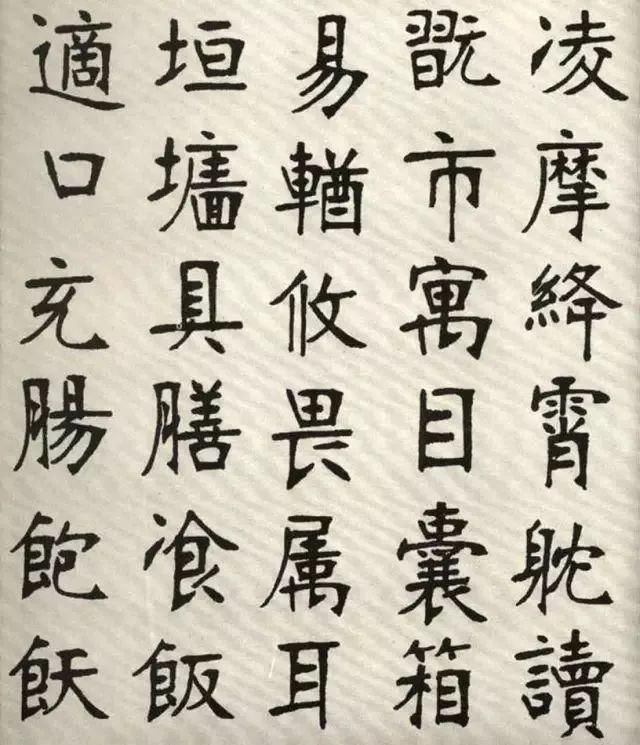 凌摩絳霄躭讀
翫市寓目囊箱
易輶攸畏属耳
垣墻具膳飡飯
適口充腸飽飫